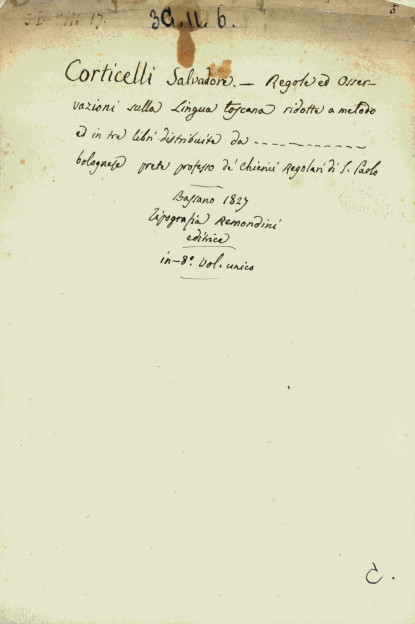 3G.11.6.
Corticelli Salvadore. — Regole ed Osser-
vazioni sulla Lingua toscana ridotte a metodo
e in tre libri distribuite da - - - - - - - - - - - -
bolognese prete professo de' Chierici Regolari di S. Paolo
Bassano 1827
tipografia Remondini
editrice
in-8º. Vol. unico
C.